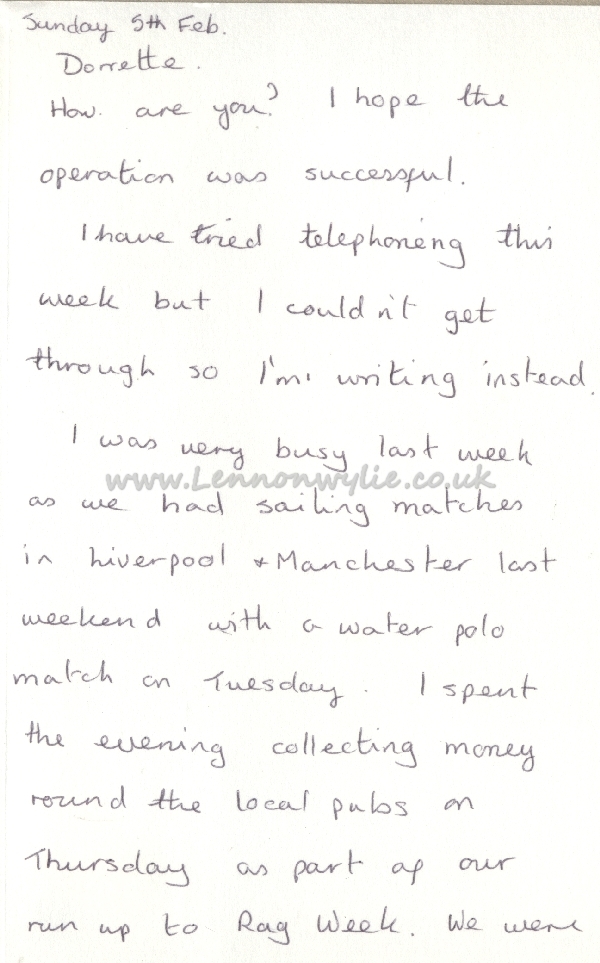 Sunday 5th Feb.
Dorrette.
How are you? I hope the
operation was successful.
I have tried telephoning this
week but I couldn't get
through so I'm writing instead.
I was very busy last week
www.Lennonwylie.co.uk
as we had sailing matches
in Liverpool + Manchester last
weekend with a water polo
match on Tuesday. I spent
the evening collecting money
round the local pubs on
Thursday as part of our
run up to Rag Week. We were